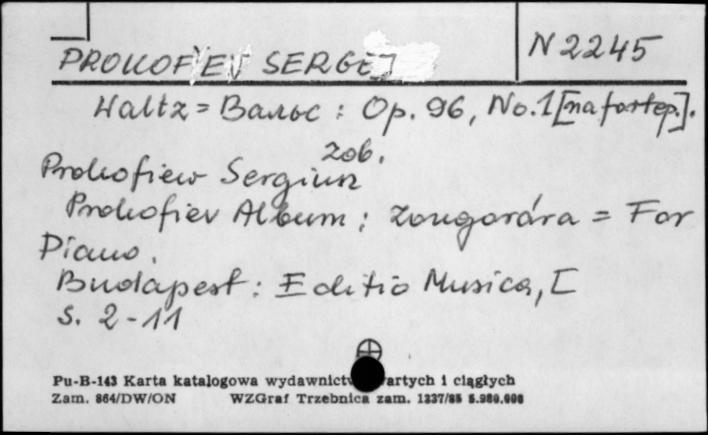 PROKOFIEV SERGEJ
N 2245
Waltz = Вальс : Op. 96, No. 1 [na fortep.].
zob.
Prokofiew Sergiusz
Prokofiev Album ; zongorára = For
Piano.
Budapest : Editio Musica, [
s. 2-11
Pu-B-143 Karta katalogowa wydawnictw artych i ciągłych
Zam. 864/DW/ON WZGraf Trzebnica zam. 1337/85 5.980.000